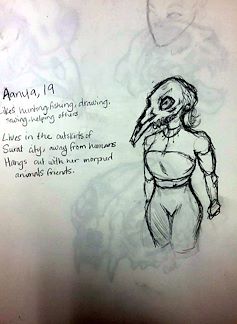 Aanya, 19
Likes hunting, fishing, drawing,
sewing, helping others
Lives in the outskirts of
Surat city, away from humans
Hangs out with her morpud
animals friends.